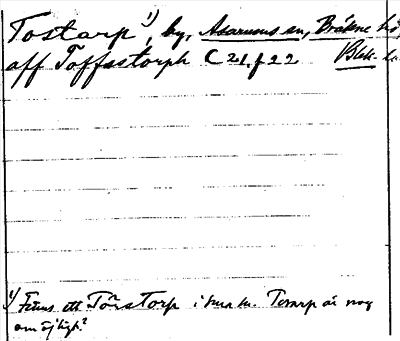 Tostarp ¹), by, Asarums sn, Bräkne hd,
aff Toffastorph C 21, f 22 Blek. l.
¹) Finns ett Törstorp i sma sn. Torarp är nog
omöjligt?